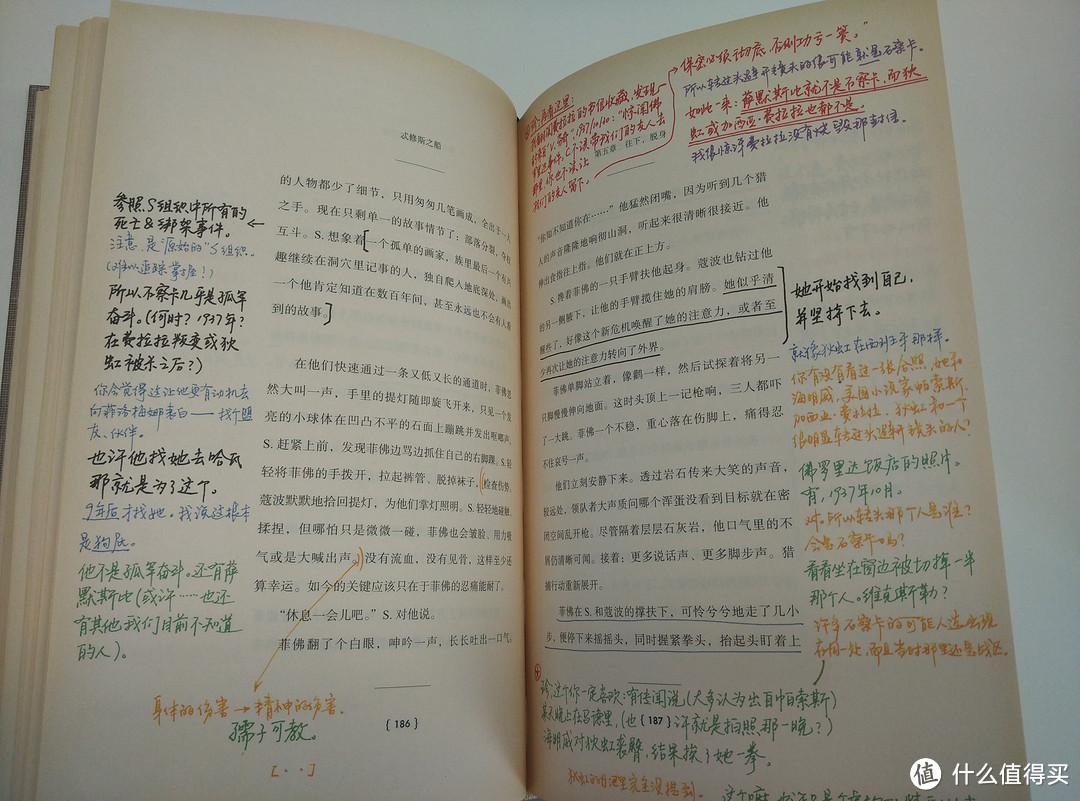 忒修斯之船
的人物都少了细节，只用匆匆几笔画成，全出于一人
之手。现在只剩单一的故事情节了：部落分裂，
互斗。S. 想象着一个孤单的画家，族里最后一个有兴
趣继续在洞穴里记事的人，独自爬入地底深处，画出
一个他肯定知道在数百年间，甚至永远也不会有人看
到的故事。
在他们快速通过一条又低又长的通道时，菲佛
然大叫一声，手里的提灯随即旋飞开来，只见一个发
亮的小球体在凹凸不平的石面上蹦跳并发出哐啷声。
S. 赶紧上前，发现菲佛边骂边抓住自己的右脚踝。S. 轻
轻将菲佛的手拨开，拉起裤管、脱掉袜子，检查伤势。
蔻波默默地拾回提灯，为他们掌灯照明。S. 轻轻地碰触、
揉捏，但哪怕只是微微一碰，菲佛也会皱脸、用力吸
气或是大喊出声。没有流血，没有见骨，这样至少还
算幸运。如今的关键应该只在于菲佛的忍痛能耐了。
“休息一会儿吧。”S. 对他说。
菲佛翻了个白眼，呻吟一声，长长吐出一口气。
{ 186 }
参照S组织中所有的
死亡&绑架事件。
注意：是“原始的”S组织。
（难以追踪掌握！）
所以石察卡几乎是孤军
奋斗。（何时？1937年？
在费拉拉叛变或狄
虹被杀之后？）
你会觉得这让他更有动机去
向菲洛梅娜表白——找个盟
友、伙伴。
也许他找她去哈瓦
那就是为了这个。
9年后才找她。我说这根本
是狗屁。
他不是孤军奋斗。还有萨
默斯比（或许……也还
有其他我们目前不知道
的人）。
身体的伤害→精神的伤害。
孺子可教。
[ . . ]
第五章 往下，脱身
保密必须彻底，否则功亏一篑。”
所以转过头避开镜头的很可能就是石察卡。
如此一来：萨默斯比就不是石察卡，而狄
虹或加西亚·费拉拉也都不是。
我很惊讶费拉拉没有烧毁那封信。
“你知不知道你在……”他猛然闭嘴，因为听到几个猎
人的声音隆隆地响彻山洞，听起来很清晰很接近。他
伸出食指往上指。他们就在正上方。
S. 搀着菲佛的一只手臂扶他起身。蔻波也钻过他
的另一侧腋下，让他的手臂揽住她的肩膀。她似乎清
醒些了，好像这个新危机唤醒了她的注意力，或者至
少再次让她的注意力转向了外界。
菲佛单脚站立着，像鹳一样，然后试探着将另一
只脚慢慢伸向地面。这时头顶上一记枪响，三人都吓
了一大跳。菲佛一个不稳，重心落在伤脚上，痛得忍
不住哀号一声。
他们立刻安静下来。透过岩石传来大笑的声音，
较远处，领队者大声质问哪个浑蛋没看到目标就在密
闭空间乱开枪。尽管隔着层层石灰岩，他口气里的不
屑仍清晰可闻。接着：更多说话声、更多脚步声。猎
捕行动重新展开。
菲佛在 S. 和蔻波的撑扶下，可怜兮兮地走了几小
步，便停下来摇摇头，同时握紧拳头，抬起头盯着上
{ 187 }
她开始找到自己，
并坚持下去。
就像狄虹在西班牙那样。
你有没有看过一张合照，她和
海明威、美国小说家帕索斯、
加西亚·费拉拉、狄虹和一个
很明显转过头避开镜头的人？
佛罗里达饭店的照片。
有，1937年10月。
对。所以转头那个人是谁？
会是石察卡吗？
看看坐在窗边被切掉一半
那个人。维克斯勒？
许多石察卡的可能人选出现
在同一处，而且当时那里还是战区。
珍：这个你一定喜欢：有传闻说，（大多认为出自帕索斯）
某个晚上在马德里，（也许就是拍照那一晚？）
海明威对狄虹袭臀，结果挨了她一拳。
狄虹的日记里完全没提到。
值 什么值得买